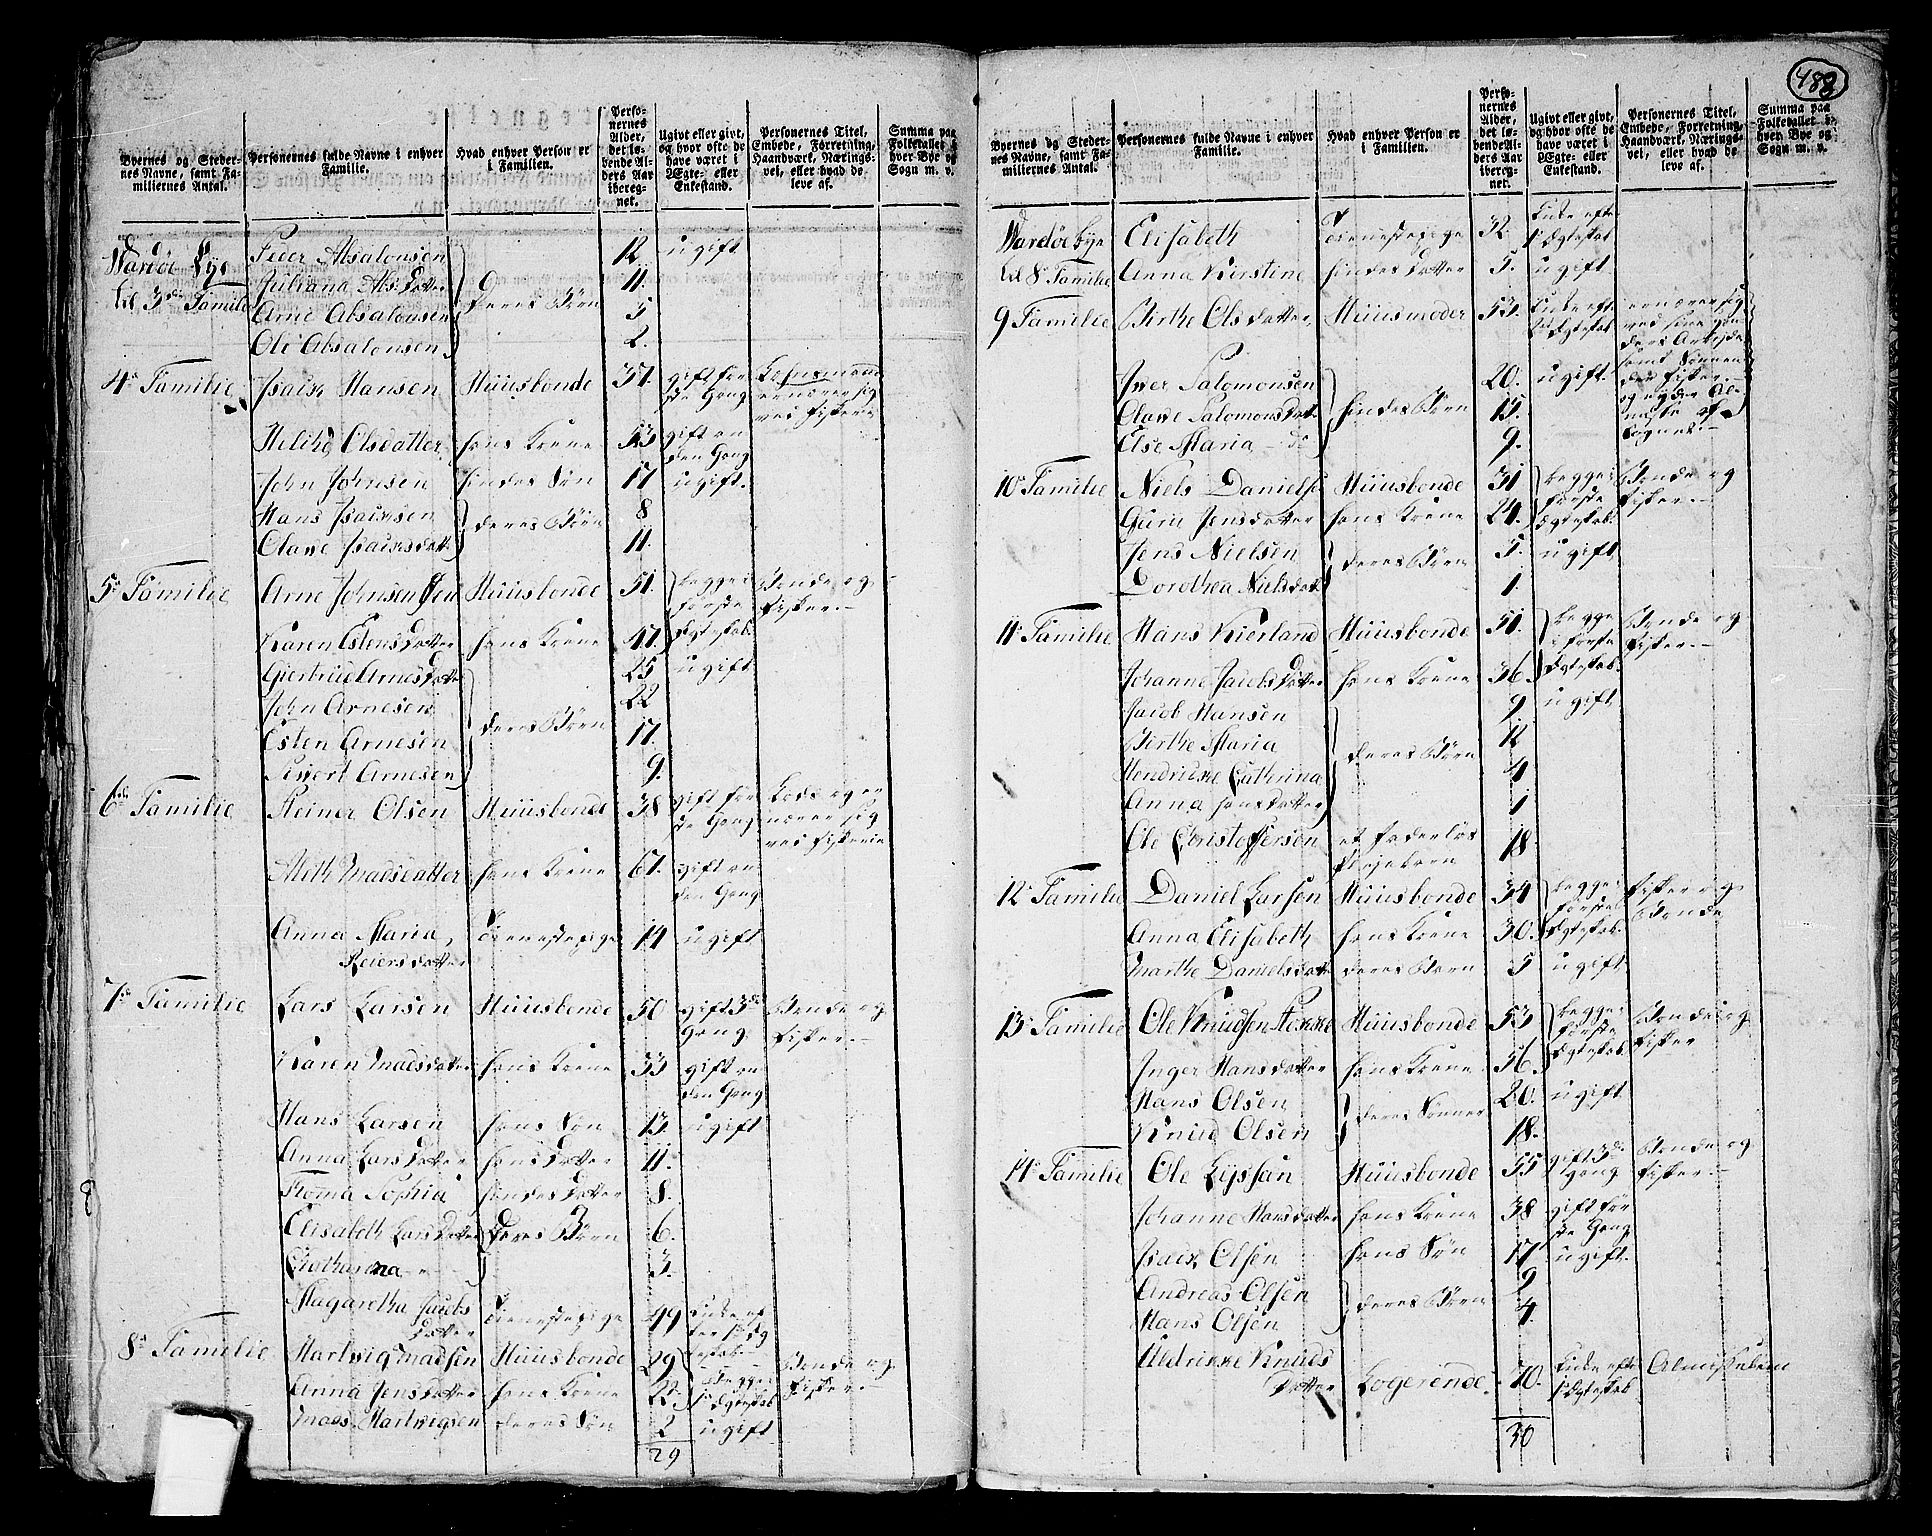 488
Byernes og Steder-
nes Navne, samt Fa-
miliernes Antal.
Personernes fulde Navne i enhver
Familie.
Hvad enhver Person er
i Familien.
Perso-
nernes
Alder,
det lø-
bende Al-
ders Aar
iberegnet.
Ugivt eller givt,
og hvor ofte de
have været i
Ægte- eller
Enkestand.
Personernes Titel,
Embede, Forretning,
Haandværk, Nærings-
vei, eller hvad de
leve af.
Summa paa
Folketallet i
hver Bye og
Sogn m. v.
Wardøe Bye Peder Absalonsen 12 ugift
til 3die Familie Juliana Abs.Datter 11.
Arne Absalonsen deres Børn 5
Ole Absalonsen 2.
4de Familie Isach Hansen Huusbonde 37. gift før-
ste Gang
ernærer sig
ved Fiskerie
Olsdatter hans Kone 53 gift an-
den Gang
John Johnsen hindes Søn 17 ugift.
Hans Isachsen 8
Olave Isachsdatt deres Børn 11.
5te Familie Arne Johnsen Huusbonde 51. begge i
første
Ægteskab
Bonde og
Fisker.
Karen EstensDatter hans Kone 47.
Giertrud ArnesDatter 25 ugift
John Arnesen 22
Esten Arnesen deres Børn 17.
Siwert Arnesen 9.
6te Familie Reiner Olsen Huusbonde 38 gift før-
ste Gang
Lods og er-
nærer sig
ved Fiskerie
Madsdatter hans Kone 67. gift an-
den Gang
Anna Maria
Reiersdatter tienestepige 14 ugift
7de Familie Lars Larsen Huusbonde 50 gift 3die
Gang
Bonde og
Fisker.
Karen Madsdatter hans Kone 33 gift an-
den Gang
Hans Larsen hans Søn 13. ugift
Anna LarsDatter hans Datter 11.
Roma Sophia hindes Datter 8.
Elisabeth LarsDatter deres Børn 6.
Catharina 3.
Magaretha Jacobs
Datter tienestepige 49 Enke ef-
ter 1ste Æg-
teskab
8de Familie Hartwig Madsen Huusbonde 29 begge i
1ste Ægteskab
Bonde og
Fisker.
Anna JensDatter hans Kone 22.
Mads Hartwigsen deres Søn 2 ugift
29
Byernes og Steder-
nes Navne, samt Fa-
miliernes Antal.
Personernes fulde Navne i enhver
Familie.
Hvad enhver Person er
i Familien.
Perso-
nernes
Alder,
det lø-
bende Al-
ders Aar
iberegnet.
Ugivt eller givt,
og hvor ofte de
have været i
Ægte- eller
Enkestand.
Personernes Titel,
Embede, Forretning,
Haandværk, Nærings-
vei, eller hvad de
leve af.
Summa paa
Folketallet i
hver Bye og
Sogn m. v.
Wardøe Bye Elisabeth tienestepige 32. Enke efter
1ste Ægteskab
til 8de Familie Anna Kirstine hindes Datter 5. ugift
9 Familie Birthe Olsdatter Huusmoder 53. Enke efter
Ægteskab
ernærer sig
ved sine Hæn-
ders Arbejde
samt Sønnen
Iver Salomonsen 20. ugift.
Olave Salomonsdat. hindes Børn 15.
Else Maria do 9.
10de Familie Niels Daniels. Huusbonde 31 begge i
første
Ægteskab
Bonde og
Fisker.
Guru Jensdatter hans Kone 24.
Jens Nielsen 5. ugift
Dorothea Nielsdat. deres Børn 1.
11te Familie Hans Kierland Huusbonde 51. begge
i første
Ægteskab.
Bonde og
Fisker.
Johanne JacobsDatter hans Kone 36.
Jacob Hansen 9 ugift
Birthe Maria 12
Hendricke Cathrina deres Børn 4
Anna HansDatter 1
Ole Christoffersen et faderløs
Plejebarn 18.
12te Familie Daniel Larsen Huusbonde 34 begge i
første
Ægteskab.
Fisker og
Bonde
Anna Elisabeth hans Kone 30.
Marthe Danielsdatt deres Barn 5 ugift
13de Familie Ole Knudsen Huusbonde 53 begge i
første
Ægteskab
Bonde og
Fisker
Inger Hansdatter hans Kone 56.
Hans Olsen 20. ugift
Knud Olsen deres Sønner 18.
14de Familie Ole Huusbonde 55 gift 3die
Gang
Bonde og
Fisker.
Johanne Hansdatter hans Kone 38 gift før-
ste Gang
Isach Olsen hans Søn 17 ugift
Andreas Olsen 9
Hans Olsen deres Børn 4.
Uldricke Knuds
Datter Logerende. 70. Enke efter
1ste Ægteskab
Almisselem
30